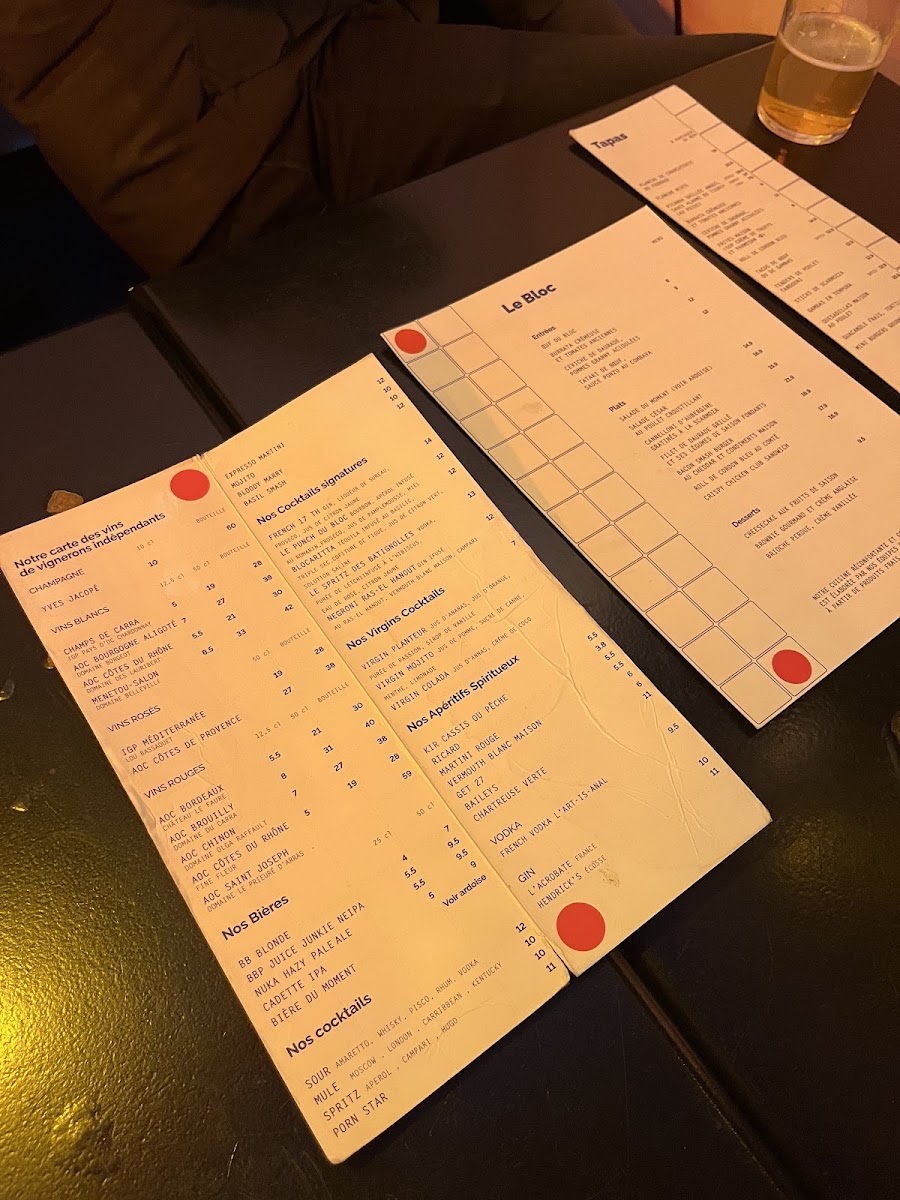 Notre carte des vins
de vignerons indépendants
CHAMPAGNE 10 cl BOUTEILLE
YVES JACOPÉ 10 60
VINS BLANCS 12,5 cl 50 cl BOUTEILLE
CHAMPS DE CARRA 5 19 28
IGP PAYS D'OC CHARDONNAY
AOC BOURGOGNE ALIGOTÉ 7 27 38
DOMAINE BONGEOT
AOC CÔTES DU RHÔNE 5.5 21 30
DOMAINE DES LAURIBERT
MENETOU-SALON 8.5 33 42
DOMAINE BELLEVILLE
VINS ROSÉS 50 cl BOUTEILLE
IGP MÉDITERRANÉE 19 28
LOU BASSAQUET
AOC CÔTES DE PROVENCE 27 38
VINS ROUGES 12,5 cl 50 cl BOUTEILLE
AOC BORDEAUX 5.5 21 30
CHÂTEAU LE FAURE
AOC BROUILLY 8 31 40
DOMAINE DU CARRA
AOC CHINON 7 27 38
DOMAINE OLGA RAFFAULT
AOC CÔTES DU RHÔNE 5 19 28
FINE FLEUR
AOC SAINT JOSEPH 59
DOMAINE LE PRIEURÉ D'ARRAS
Nos Bières 25 cl 50 cl
BB BLONDE 4 7
BBP JUICE JUNKIE NEIPA 5.5 9.5
NUKA HAZY PALE ALE 5.5 9.5
CADETTE IPA 5 9
BIÈRE DU MOMENT Voir ardoise
Nos cocktails
SOUR AMARETTO, WHISKY, PISCO, RHUM, VODKA 12
MULE MOSCOW , LONDON , CARRIBBEAN , KENTUCKY 10
SPRITZ APEROL , CAMPARI , HUGO 10
PORN STAR 11
EXPRESSO MARTINI 12
MOJITO 10
BLOODY MARRY 10
BASIL SMASH 12
Nos Cocktails signatures
FRENCH 17 TH GIN, LIQUEUR DE SUREAU, 14
PROSECO, JUS DE CITRON JAUNE
LE PUNCH DU BLOC BOURBON, APÉROL INFUSÉ 12
AU ROMARIN, PROSÉCO, JUS DE PAMPLEMOUSSE, MIEL
BLOCARITTA TEQUILA INFUSÉ AU BASILIC, 12
TRIPLE SEC, CONFITURE DE FIGUE, JUS DE CITRON VERT,
SOLUTION SALINE
LE SPRITZ DES BATIGNOLLES VODKA, 13
PURÉE DE LETCHI INFUSÉ À L'HIBISCUS,
EAU DE ROSE, CITRON JAUNE
NEGRONI RAS-EL HANOUT GIN INFUSÉ 12
AU RAS-EL HANOUT, VERMOUTH BLANC MAISON, CAMPARI
Nos Virgins Cocktails 7
VIRGIN PLANTEUR JUS D'ANANAS, JUS D'ORANGE,
PURÉE DE PASSION, SIROP DE VANILLE
VIRGIN MOJITO JUS DE POMME, SUCRE DE CANNE,
MENTHE, LIMONADE
VIRGIN COLADA JUS D'ANANAS, CRÈME DE COCO
Nos Apéritifs Spiritueux
KIR CASSIS OU PÊCHE 5.5
RICARD 3.8
MARTINI ROUGE 5.5
VERMOUTH BLANC MAISON 5.5
GET 27 6
BAILEYS 6
CHARTREUSE VERTE 11
VODKA
FRENCH VODKA L'ART-IS-ANAL 9.5
GIN
L'AGROBATE FRANCE 10
HENDRICK'S ÉCOSSE 11
Le Bloc
MENU
Entrées
ŒUF DU BLOC 6
BURRATA CRÉMEUSE 9
ET TOMATES ANCIENNES
CEVICHE DE DAURADE, 12
POMMES GRANNY ACIDULÉES
TATAKI DE BŒUF, 12
SAUCE PONZU AU COMBAVA
Plats
SALADE DU MOMENT (VOIR ARDOISE)
SALADE CÉSAR
AU POULET CROUSTILLANT
CANNELLONI D'AUBERGINE
GRATINÉS À LA SCARMOZA
FILET DE DAURADE GRILLÉ
ET SES LÉGUMES DE SAISON FONDANTS
BACON SMASH BURGER
AU CHEDDAR ET CONDIMENTS MAISON
ROLL DE CORDON BLEU AU COMTÉ
CRISPY CHICKEN CLUB SANDWICH
Desserts
CHEESECAKE AUX FRUITS DE SAISON
BROWNIE GOURMAND ET CRÈME ANGLAISE
BRIOCHE PERDUE, CRÈME VANILLÉE
NOTRE CUISINE RÉCONFORTANTE ET
EST ÉLABORÉE PAR NOS ÉQUIPES
À PARTIR DE PRODUITS FRAIS
Tapas
PLANCHE DE CHARCUTERIE
OU FROMAGE
PLANCHE MIXTE
BURRATA CRÉMEUSE
ET TOMATES ANCIENNES
CEVICHE DE DAURADE,
POMMES GRANNY ACIDULÉES
FRITES MAISON
ROLL DE CORDON BLEU
TACOS DE BŒUF
OU DE GAMBAS
TENDERS DE POULET
TANDOORI
STICKS DE SCARMOZA
GAMBAS EN TEMPURA
QUESADILLAS MAISON
AU POULET
GUACAMOLE FRAIS,
MINI BURGERS